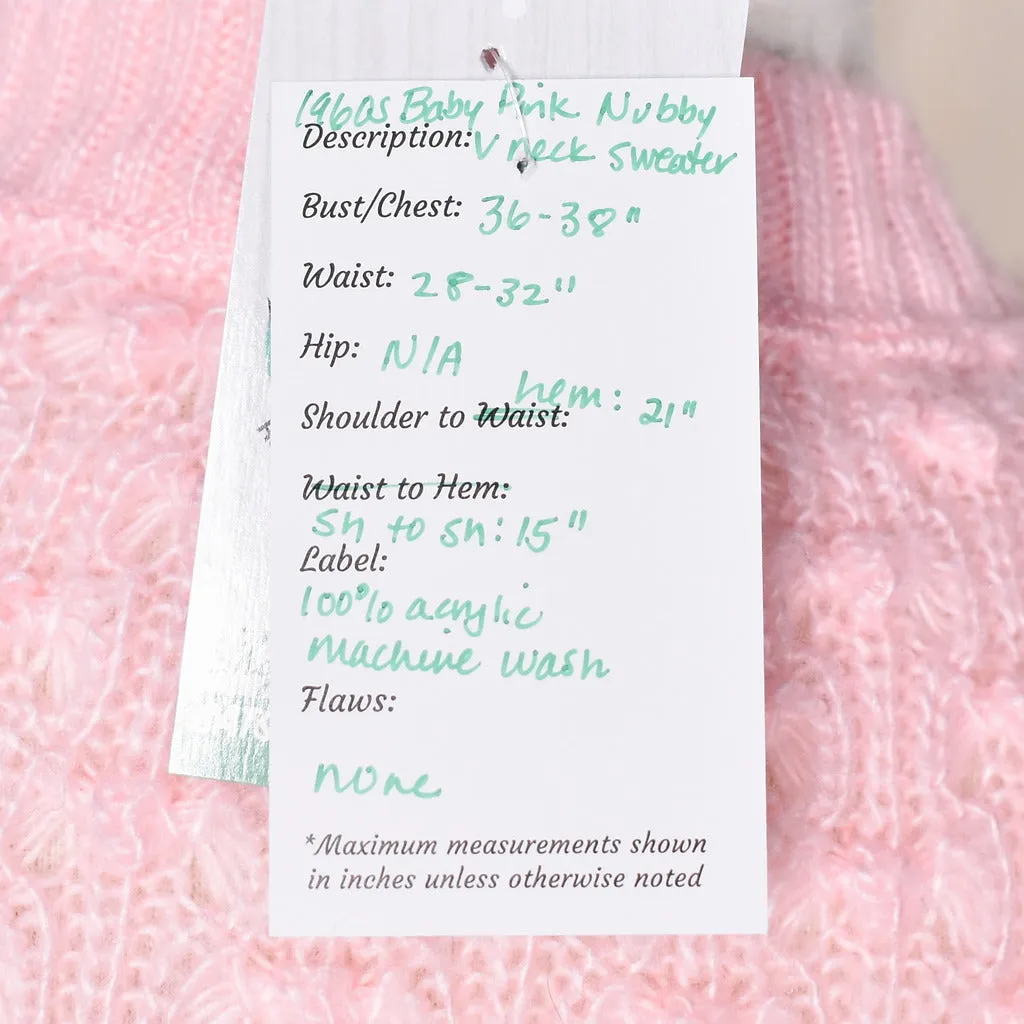 1960s Baby Pink Nubby
Description: V neck sweater
Bust/Chest: 36-38"
Waist: 28-32"
Hip: N/A
hem:
Shoulder to Waist: 21"
Waist to Hem:
Sh to sh: 15"
Label:
100% acrylic
machine wash
Flaws:
none
*Maximum measurements shown
in inches unless otherwise noted